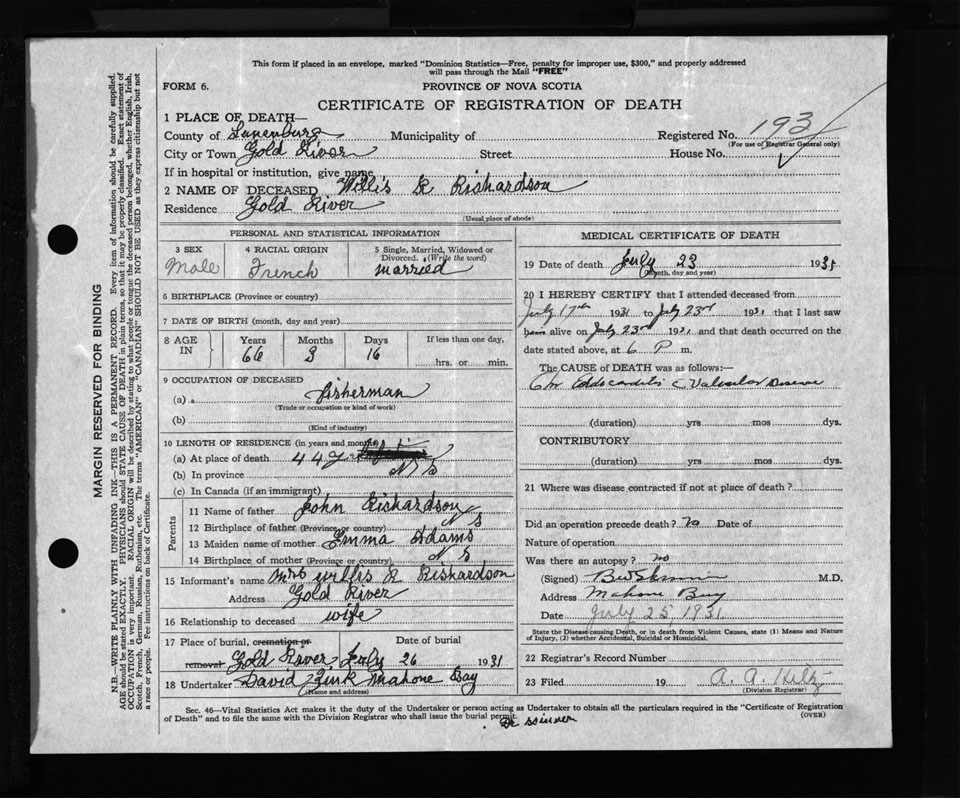 This form if placed in an envelope, marked "Dominion Statistics—Free, penalty for improper use, $300," and properly addressed
will pass through the Mail "FREE"
FORM 6.
PROVINCE OF NOVA SCOTIA
CERTIFICATE OF REGISTRATION OF DEATH
1 PLACE OF DEATH—
County of Lunenburg Municipality of Registered No. 193
(For use of Registrar General only)
City or Town Gold River Street House No.
If in hospital or institution, give name
2 NAME OF DECEASED Willis R. Richardson
Residence Gold River
(Usual place of abode)
PERSONAL AND STATISTICAL INFORMATION
3 SEX 4 RACIAL ORIGIN 5 Single, Married, Widowed or
Divorced. (Write the word)
Male French married
6 BIRTHPLACE (Province or country)
7 DATE OF BIRTH (month, day and year)
8 AGE IN Years Months Days If less than one day,
66 3 16 hrs. or min.
9 OCCUPATION OF DECEASED
(a) a fisherman
(Trade or occupation or kind of work)
(b)
(Kind of industry)
10 LENGTH OF RESIDENCE (in years and months)
(a) At place of death 44 y
(b) In province N S
(c) In Canada (if an immigrant)
Parents
11 Name of father John Richardson
12 Birthplace of father (Province or country) N S
13 Maiden name of mother Emma Adams
14 Birthplace of mother (Province or country) N S
15 Informant's name Mrs Willis R Richardson
Address Gold River
16 Relationship to deceased wife
17 Place of burial, cremation or Date of burial
removal Gold River July 26 1931
18 Undertaker David Zink Mahone Bay
(Name and address)
MEDICAL CERTIFICATE OF DEATH
19 Date of death July 23 1931
(Month, day and year)
20 I HEREBY CERTIFY that I attended deceased from
July 17th 1931 to July 23rd 1931 that I last saw
him alive on July 23rd 1931 and that death occurred on
date stated above, at 6 P m.
The CAUSE OF DEATH was as follows:—
Chr Endocarditis c Valvular Disease
(duration) yrs mos dys.
CONTRIBUTORY
(duration) yrs mos dys.
21 Where was disease contracted if not at place of death?
Did an operation precede death? no Date of
Nature of operation
Was there an autopsy? no
(Signed) M.D.
Address Mahone Bay
Date July 25, 1931
State the Disease causing Death, or in death from Violent Causes, state (1) Means and Nature
of Injury, (2) whether Accidental, Suicidal or Homicidal.
22 Registrar's Record Number
23 Filed 19
(Division Registrar)
Sec. 46—Vital Statistics Act makes it the duty of the Undertaker or person acting as Undertaker to obtain all the particulars required in the "Certificate of Registration
of Death" and to file the same with the Division Registrar who shall issue the burial permit. (OVER)
Dr Skinner
MARGIN RESERVED FOR BINDING
N.B.—WRITE PLAINLY WITH UNFADING INK—THIS IS A PERMANENT RECORD. Every item of information should be carefully supplied.
AGE should be stated EXACTLY. PHYSICIANS should STATE CAUSE OF DEATH in plain terms, so that it may be properly classified. Exact statement of
OCCUPATION is very important. RACIAL ORIGIN will be described by stating to what people or tongue the deceased person belonged, whether English, Irish,
Scotch, French, German, Russian, Ruthenian, etc. The terms "AMERICAN" or "CANADIAN" SHOULD NOT BE USED as they express citizenship but not
a race or people. See instructions on back of Certificate.